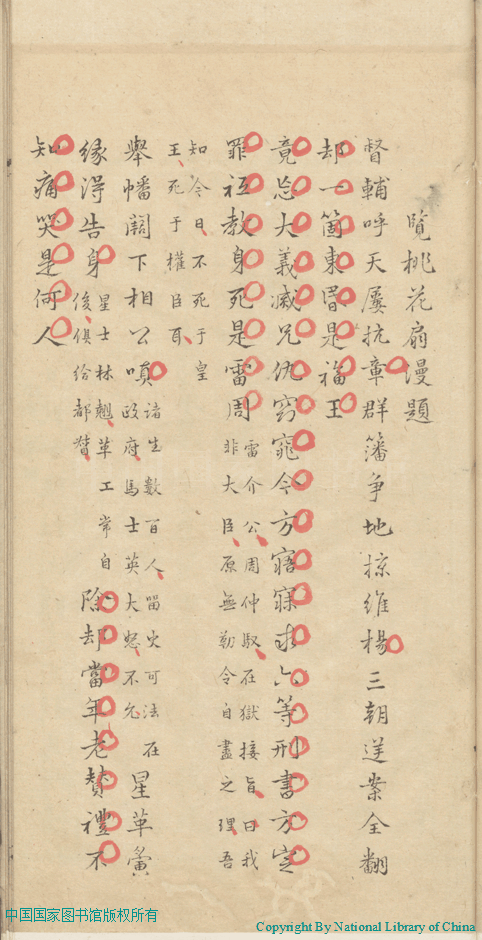 覽桃花扇漫題
督輔呼天屢抗章群藩爭地掠維楊三朝逆案全翻
却一箇東昏是福王
竟忘大義滅兄仇窈窕今方寤寐求六等刑書方定
罪祗教身死是雷周
雷介公周仲馭在獄接旨曰我
非大臣原無勒令自盡之理吾
知今日不死于皇
王死于權臣耳
舉幡闕下相公嗔
諸生數百人留史可法在
政府馬士英大怒不允
星革黌
緣淂告身
星士林翹革工常自
俊俱給都督
除却當年老贊禮不
知痛哭是何人
中国国家图书馆版权所有
Copyright By National Library of China